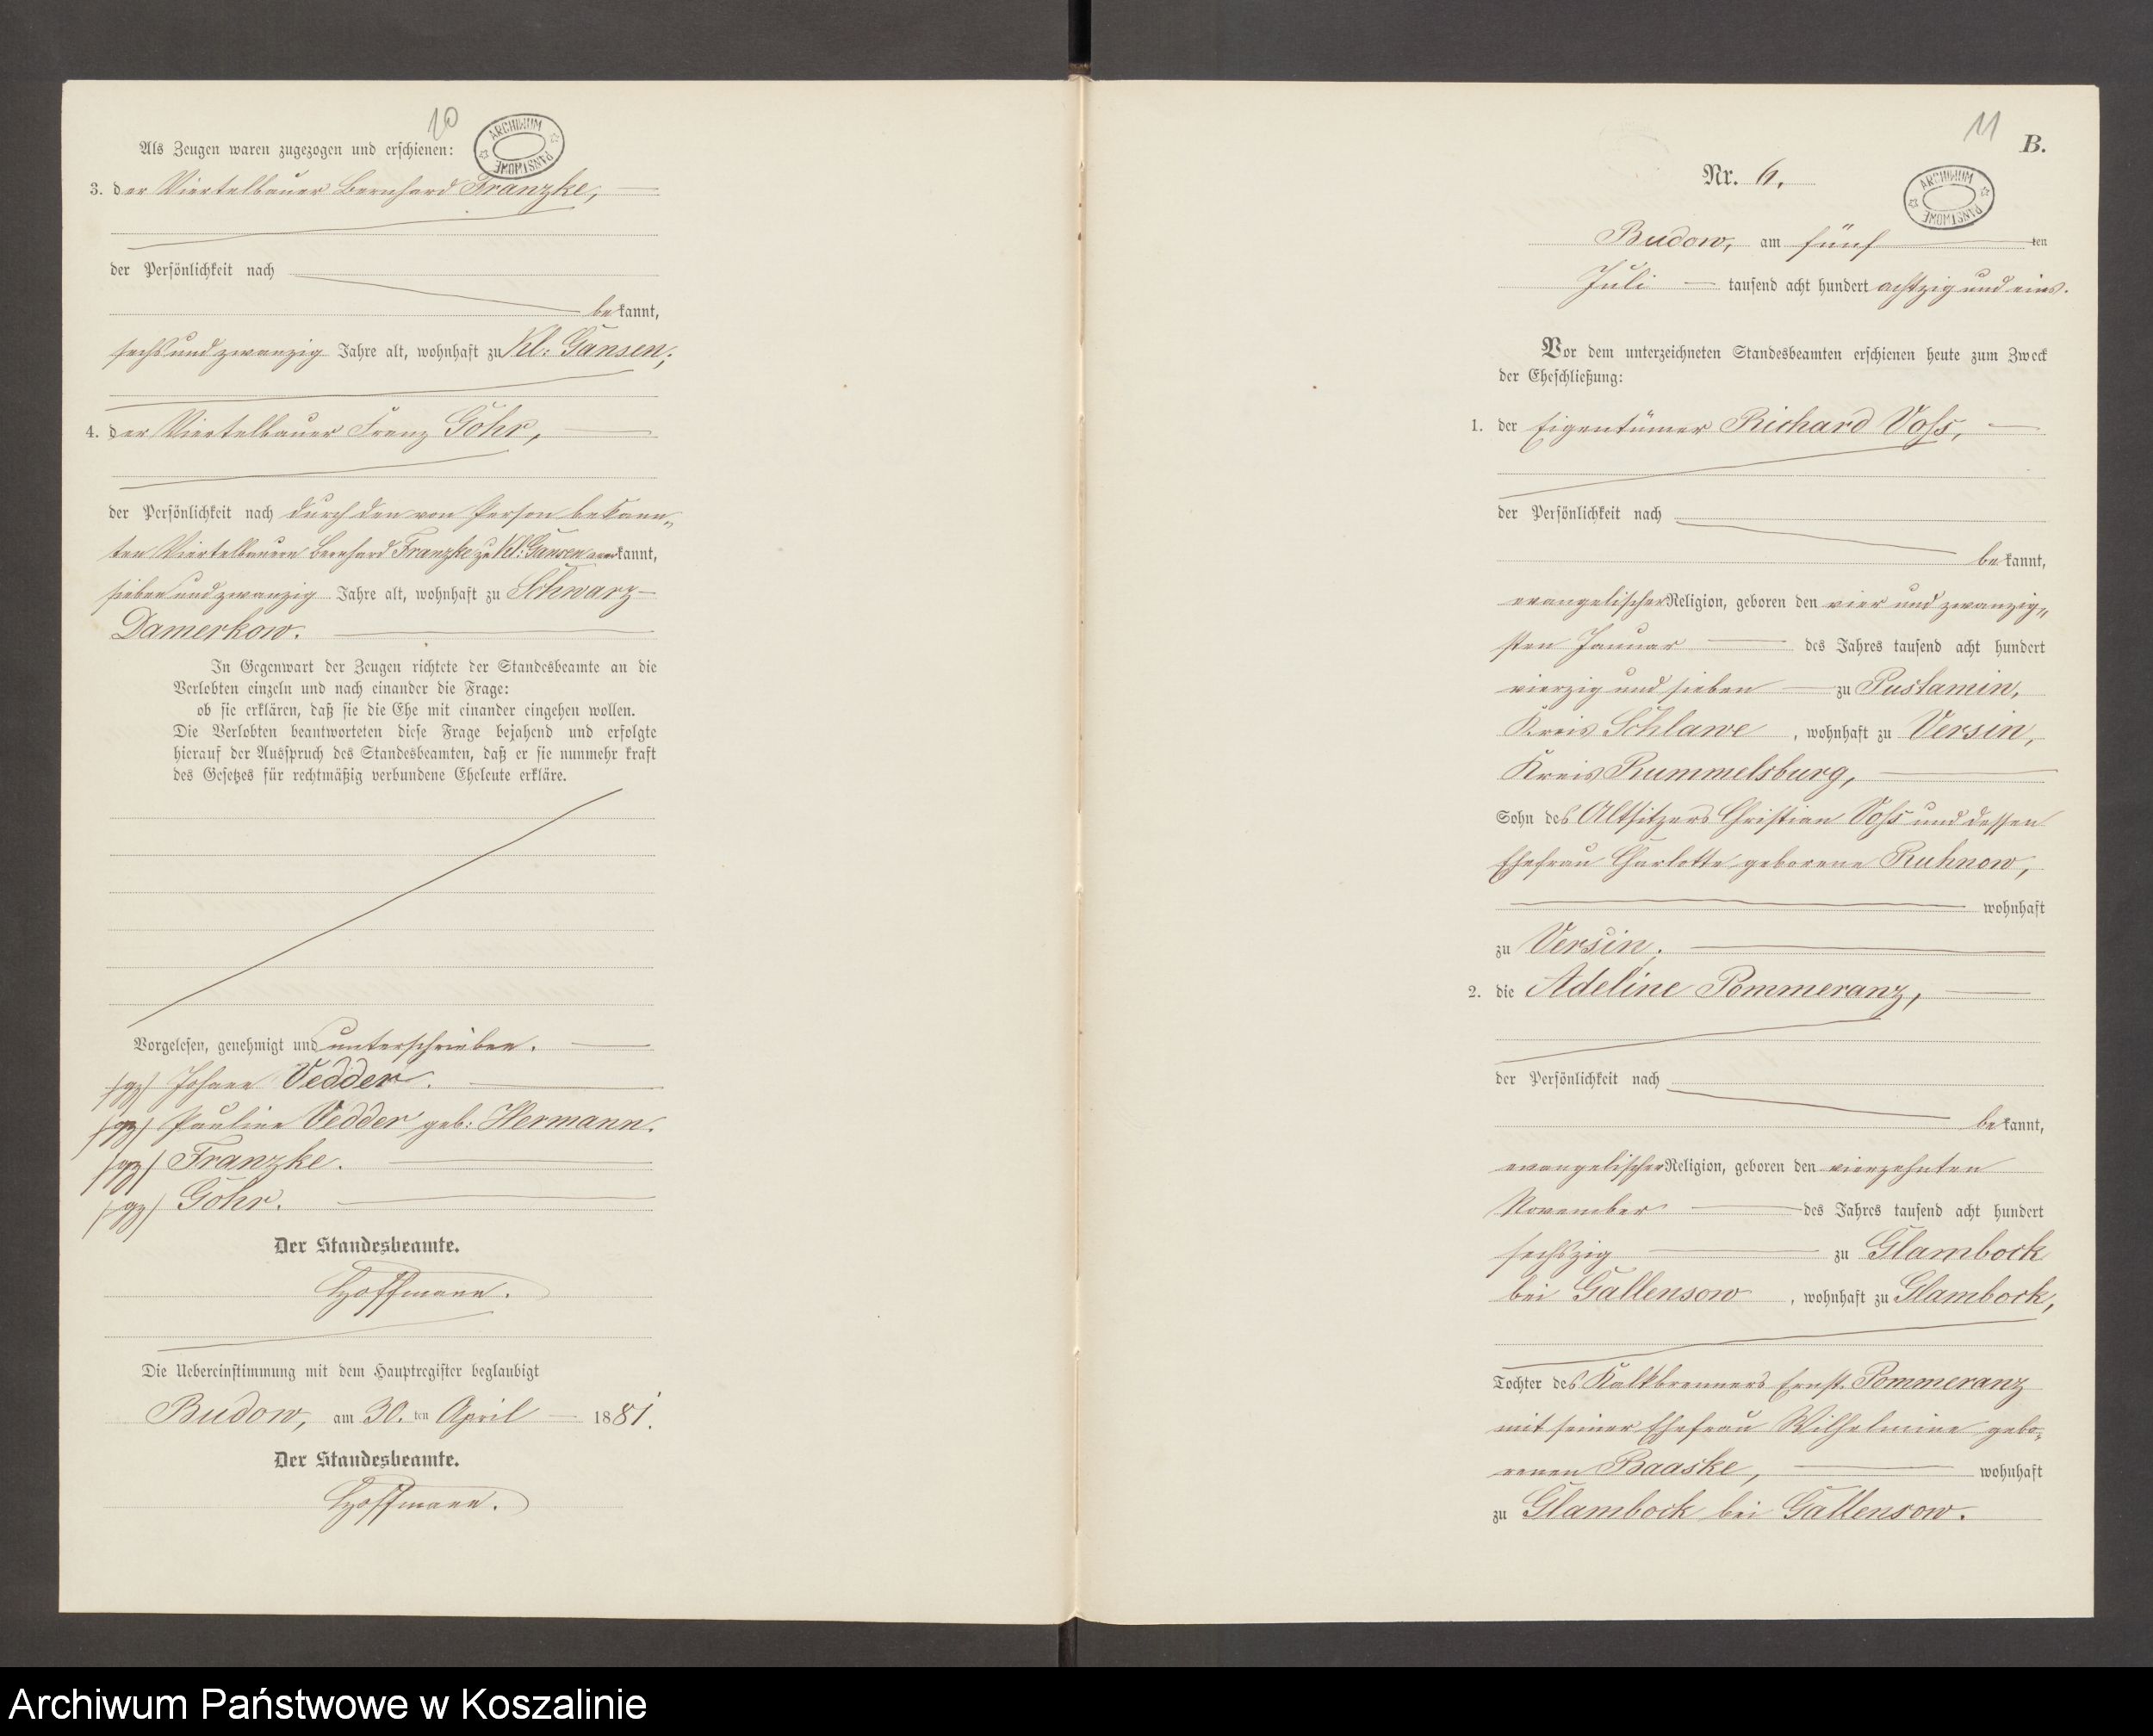 10
ARCHIWUM PAŃSTWOWE
Als Zeugen waren zugezogen und erschienen:
3. der Viertelbauer Bernhard Franzke,
der Persönlichkeit nach
bekannt,
sechs und zwanzig Jahre alt, wohnhaft zu Kl: Gansen;
4. der Viertelbauer Franz Göhr,
der Persönlichkeit nach durch den von Person bekann„
ten Viertelbauern Bernhard Franzke zu Kl: Gansen anerkannt,
sieben und zwanzig Jahre alt, wohnhaft zu Schwarz-
Damerkow.
In Gegenwart der Zeugen richtete der Standesbeamte an die
Verlobten einzeln und nach einander die Frage:
ob sie erklären, daß sie die Ehe mit einander eingehen wollen.
Die Verlobten beantworteten diese Frage bejahend und erfolgte
hierauf der Ausspruch des Standesbeamten, daß er sie nunmehr kraft
des Gesetzes für rechtmäßig verbundene Eheleute erkläre.
Vorgelesen, genehmigt und unterschrieben.
/gz/ Johann Vedder.
/gz/ Pauline Vedder geb: Hermann.
/gz/ Franzke.
/gz/ Göhr.
Der Standesbeamte.
Hoffmann.
Die Uebereinstimmung mit dem Hauptregister beglaubigt
Budow, am 30.ten April 1881.
Der Standesbeamte.
Hoffmann.
11
B.
Nr. 6.
ARCHIWUM PAŃSTWOWE
Budow, am fünf ten
Juli tausend acht hundert achtzig und eins.
Vor dem unterzeichneten Standesbeamten erschienen heute zum Zweck
der Eheschließung:
1. der Eigentümer Richard Voß,
der Persönlichkeit nach
bekannt,
evangelischer Religion, geboren den vier und zwanzig„
sten Januar des Jahres tausend acht hundert
vierzig und sieben zu Pustamin,
Kreis Schlawe, wohnhaft zu Versin,
Kreis Rummelsburg,
Sohn des Altsitzers Christian Voß und dessen
Ehefrau Charlotte geborene Ruhnow,
wohnhaft
zu Versin.
2. die Adeline Pommeranz,
der Persönlichkeit nach
bekannt,
evangelischer Religion, geboren den vierzehnten
November des Jahres tausend acht hundert
sechszig zu Glambock
bei Gallensow, wohnhaft zu Glambock,
Tochter des Kalkbrenners Ernst Pommeranz
mit seiner Ehefrau Wilhelmine gebo„
renen Baaske, wohnhaft
zu Glambock bei Gallensow.
Archiwum Państwowe w Koszalinie